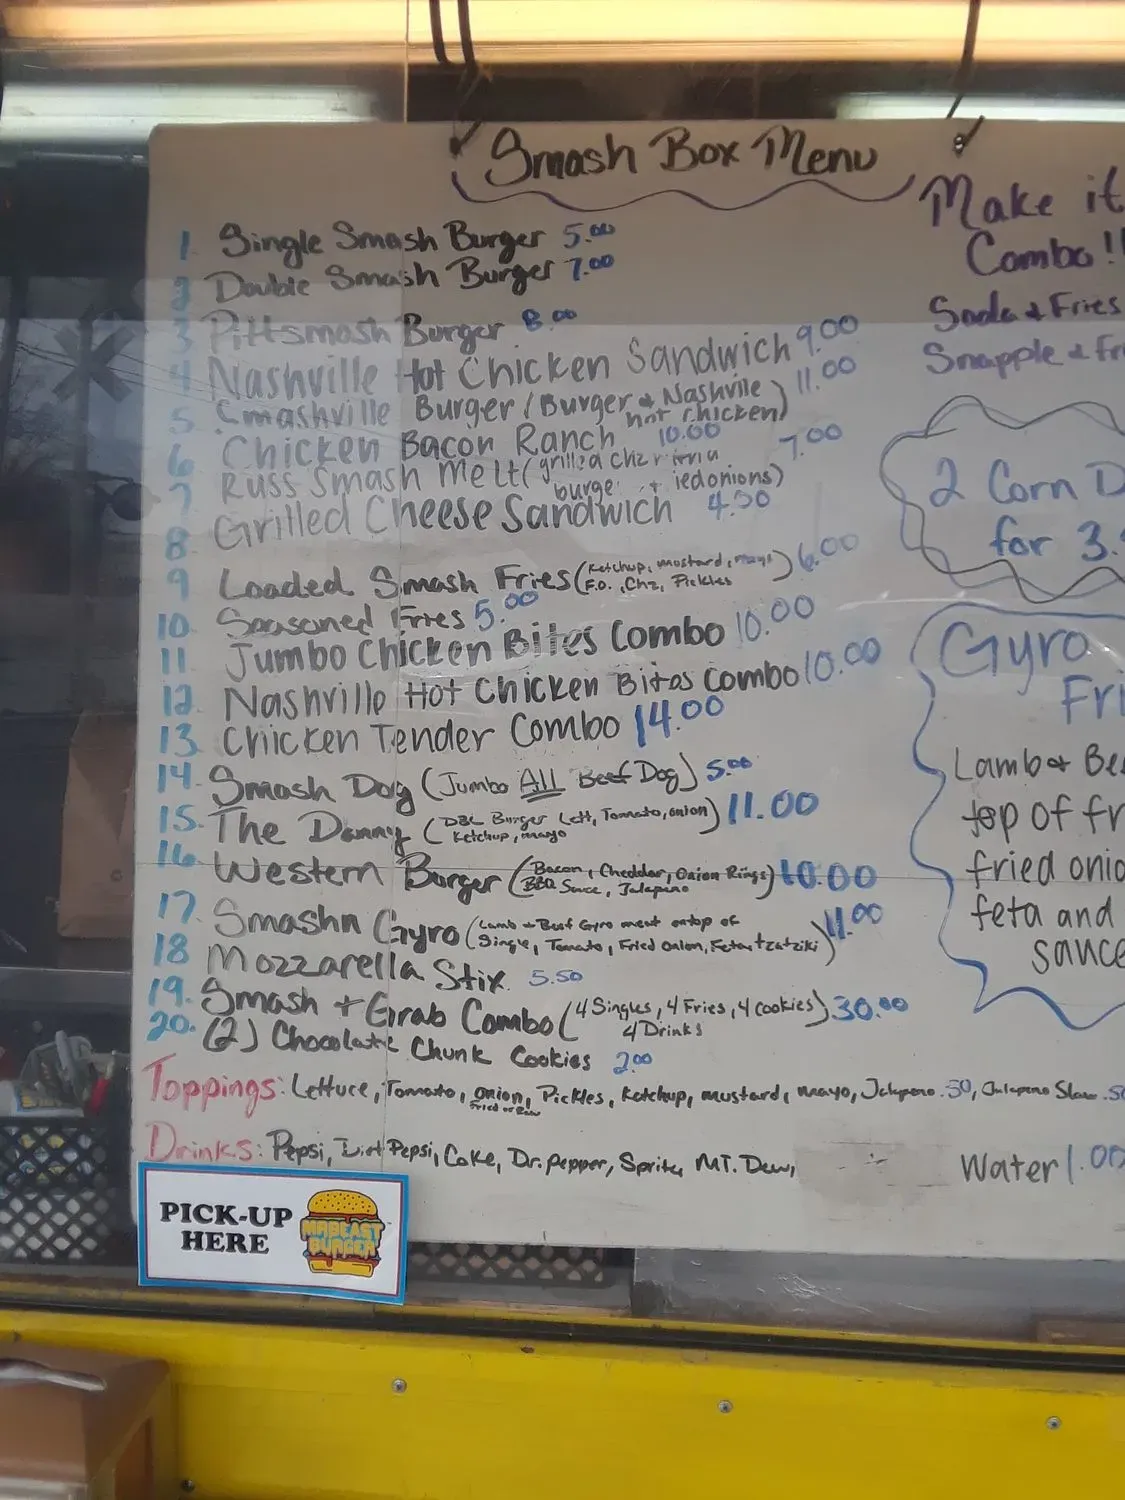 Smash Box Menu
1. Single Smash Burger 5.00
2 Double Smash Burger 7.00
3 Pittsmash Burger 8.00
4 Nashville Hot Chicken Sandwich 9.00
5 Smashville Burger (Burger & Nashville hot chicken) 11.00
6 Chicken Bacon Ranch 10.00
7 Russ Smash Melt (grilled chz 7.00
burge + iedonions)
8 Grilled Cheese Sandwich 4.50
9 Loaded Smash Fries (Ketchup, mustard, mayo 6.00
F.O., Chz, Pickles)
10 Seasoned Fries 5.00
11 Jumbo Chicken Bites Combo 10.00
12 Nashville Hot Chicken Bites Combo 10.00
13 Chicken Tender Combo 14.00
14. Smash Dog (Jumbo All Beef Dog) 5.00
15. The Danny (DBL Burger Lett, Tomato, onion) 11.00
Ketchup, mayo
16 Western Burger (Bacon, Cheddar, Onion Rings) 10.00
BBQ Sauce, Jalapeno
17. Smashn Gyro (Lamb + Beef Gyro meat ontop of 11.00
Single, Tomato, Fried onion, Feta, tzatziki)
18 Mozzarella Stix 5.50
19. Smash + Grab Combo (4 Singles, 4 Fries, 4 cookies) 30.00
4 Drinks
20. (2) Chocolate Chunk Cookies 2.00
Toppings: Lettuce, Tomato, onion, Pickles, Ketchup, mustard, mayo, Jalapeno .50, Jalapeno Slaw .5
Fried or Raw
Drinks: Pepsi, Diet Pepsi, Coke, Dr. pepper, Sprite, MT. Dew,
Water 1.00
Make it
Combo!!
Soda & Fries
Snapple & Fr
2 Corn D
for 3.
Gyro
Fri
Lamb & Be
top of fr
fried onio
feta and
sauce
PICK-UP
HERE
MRBEAST
BURGER